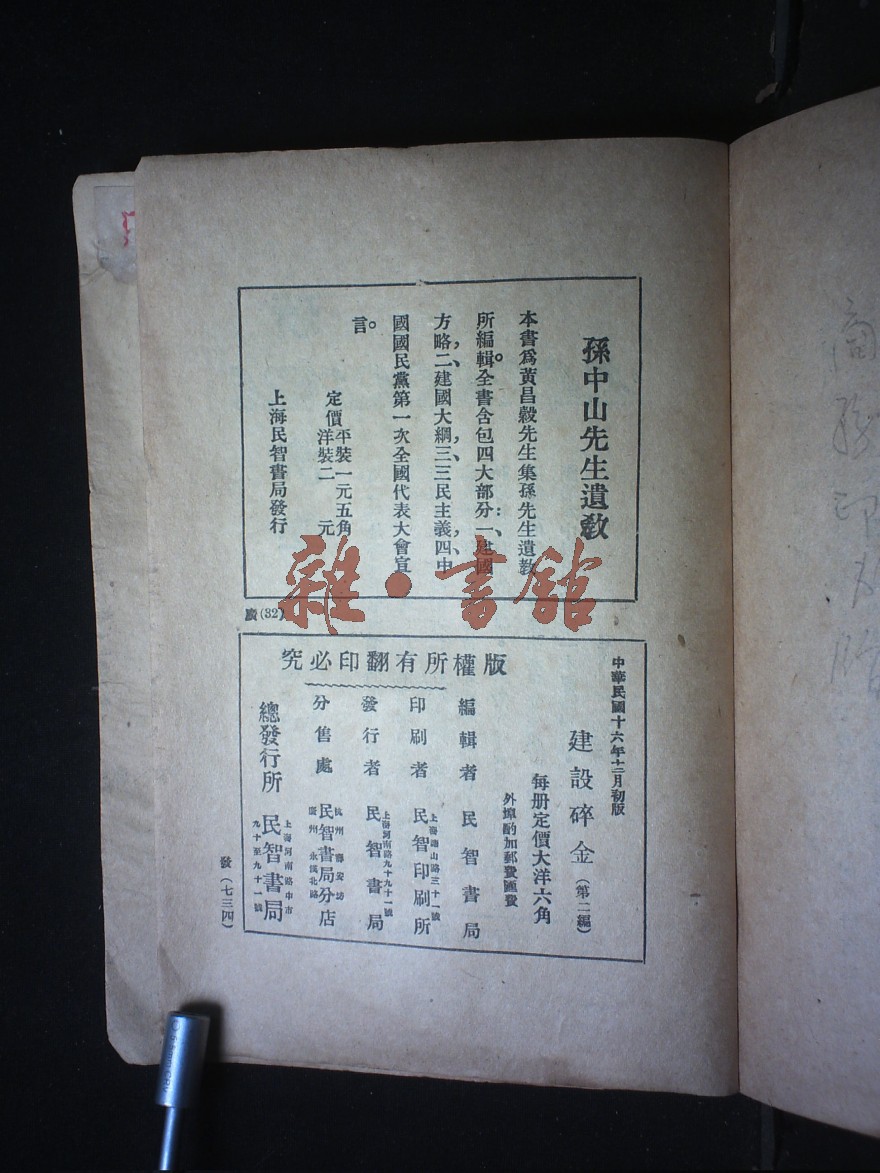 孫中山先生遺敎
本書爲黃昌穀先生集孫先生遺敎
所編輯。全書含包四大部分：一、建國
方略，二、建國大綱，三、三民主義，四、中
國國民黨第一次全國代表大會宣
言。
定價平裝一元五角
洋裝二 元
上海民智書局發行
(32)
雜·書館
中華民國十六年十二月初版
建設碎金（第二編）
每册定價大洋六角
外埠酌加郵費匯費
版權所有翻印必究
編輯者 民智書局
印刷者 民智印刷所
發行者 上海河南路九十九十一號 民智書局
分售處 民智書局分店
總發行所 上海河南路中市 九十至九十一號 民智書局
發（七三四）